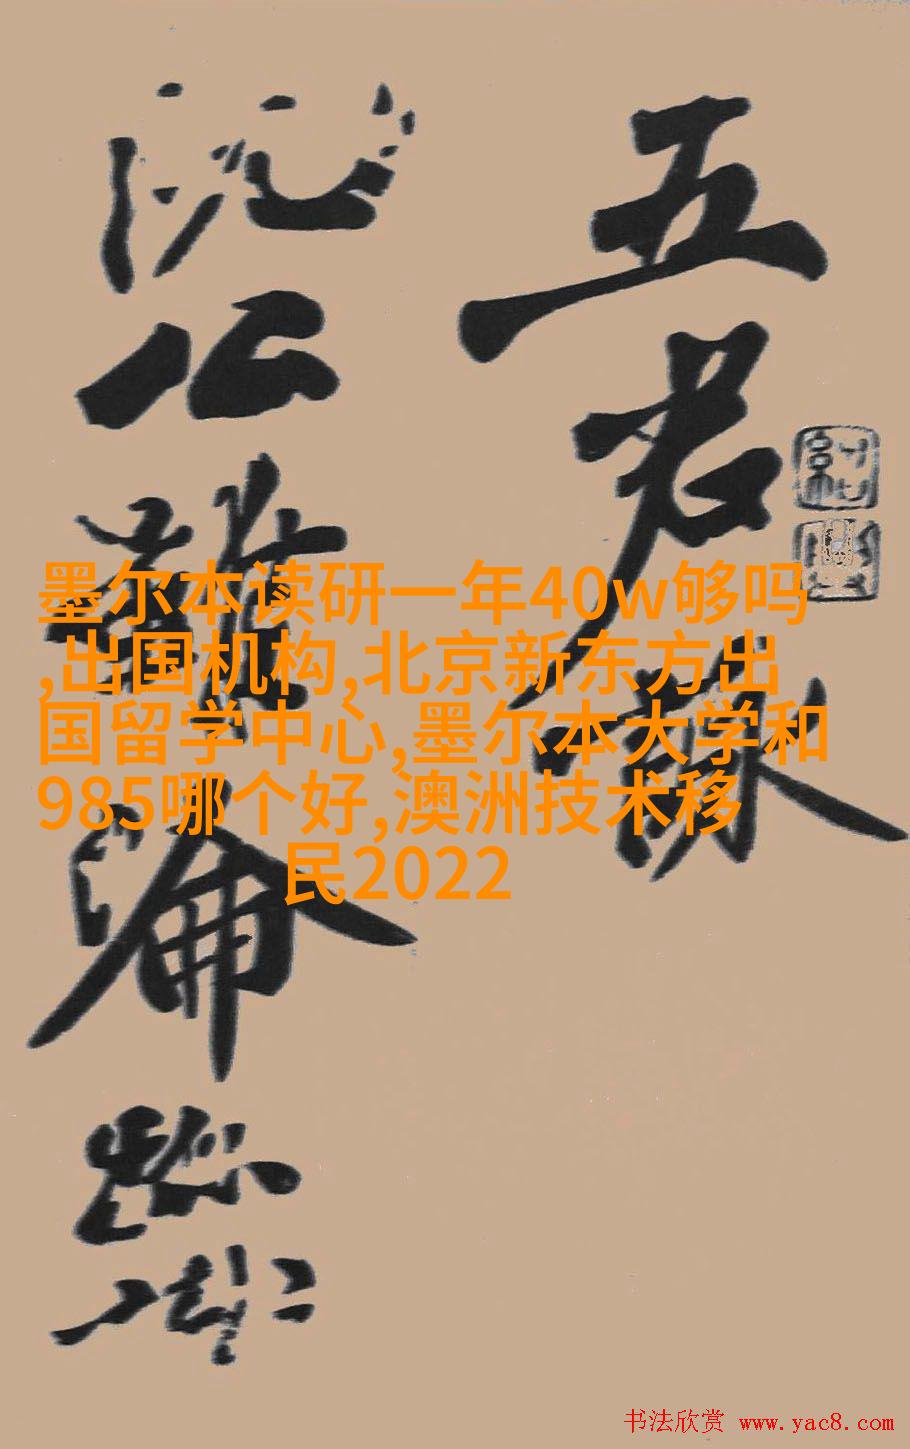 五君詠
阮公雖淪跡
墨尔本读研一年40w够吗
,出国机构,北京新东方出
国留学中心,墨尔本大学和
985哪个好,澳洲技术移
民2022
书法欣赏 www.yac8.com